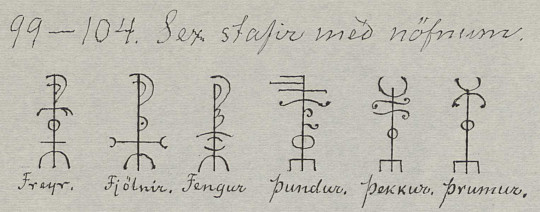 99—104. Sex stafir með nöfnum.
Freyr. Fjölnir. Fengur þundur. þekkur. þrumur.